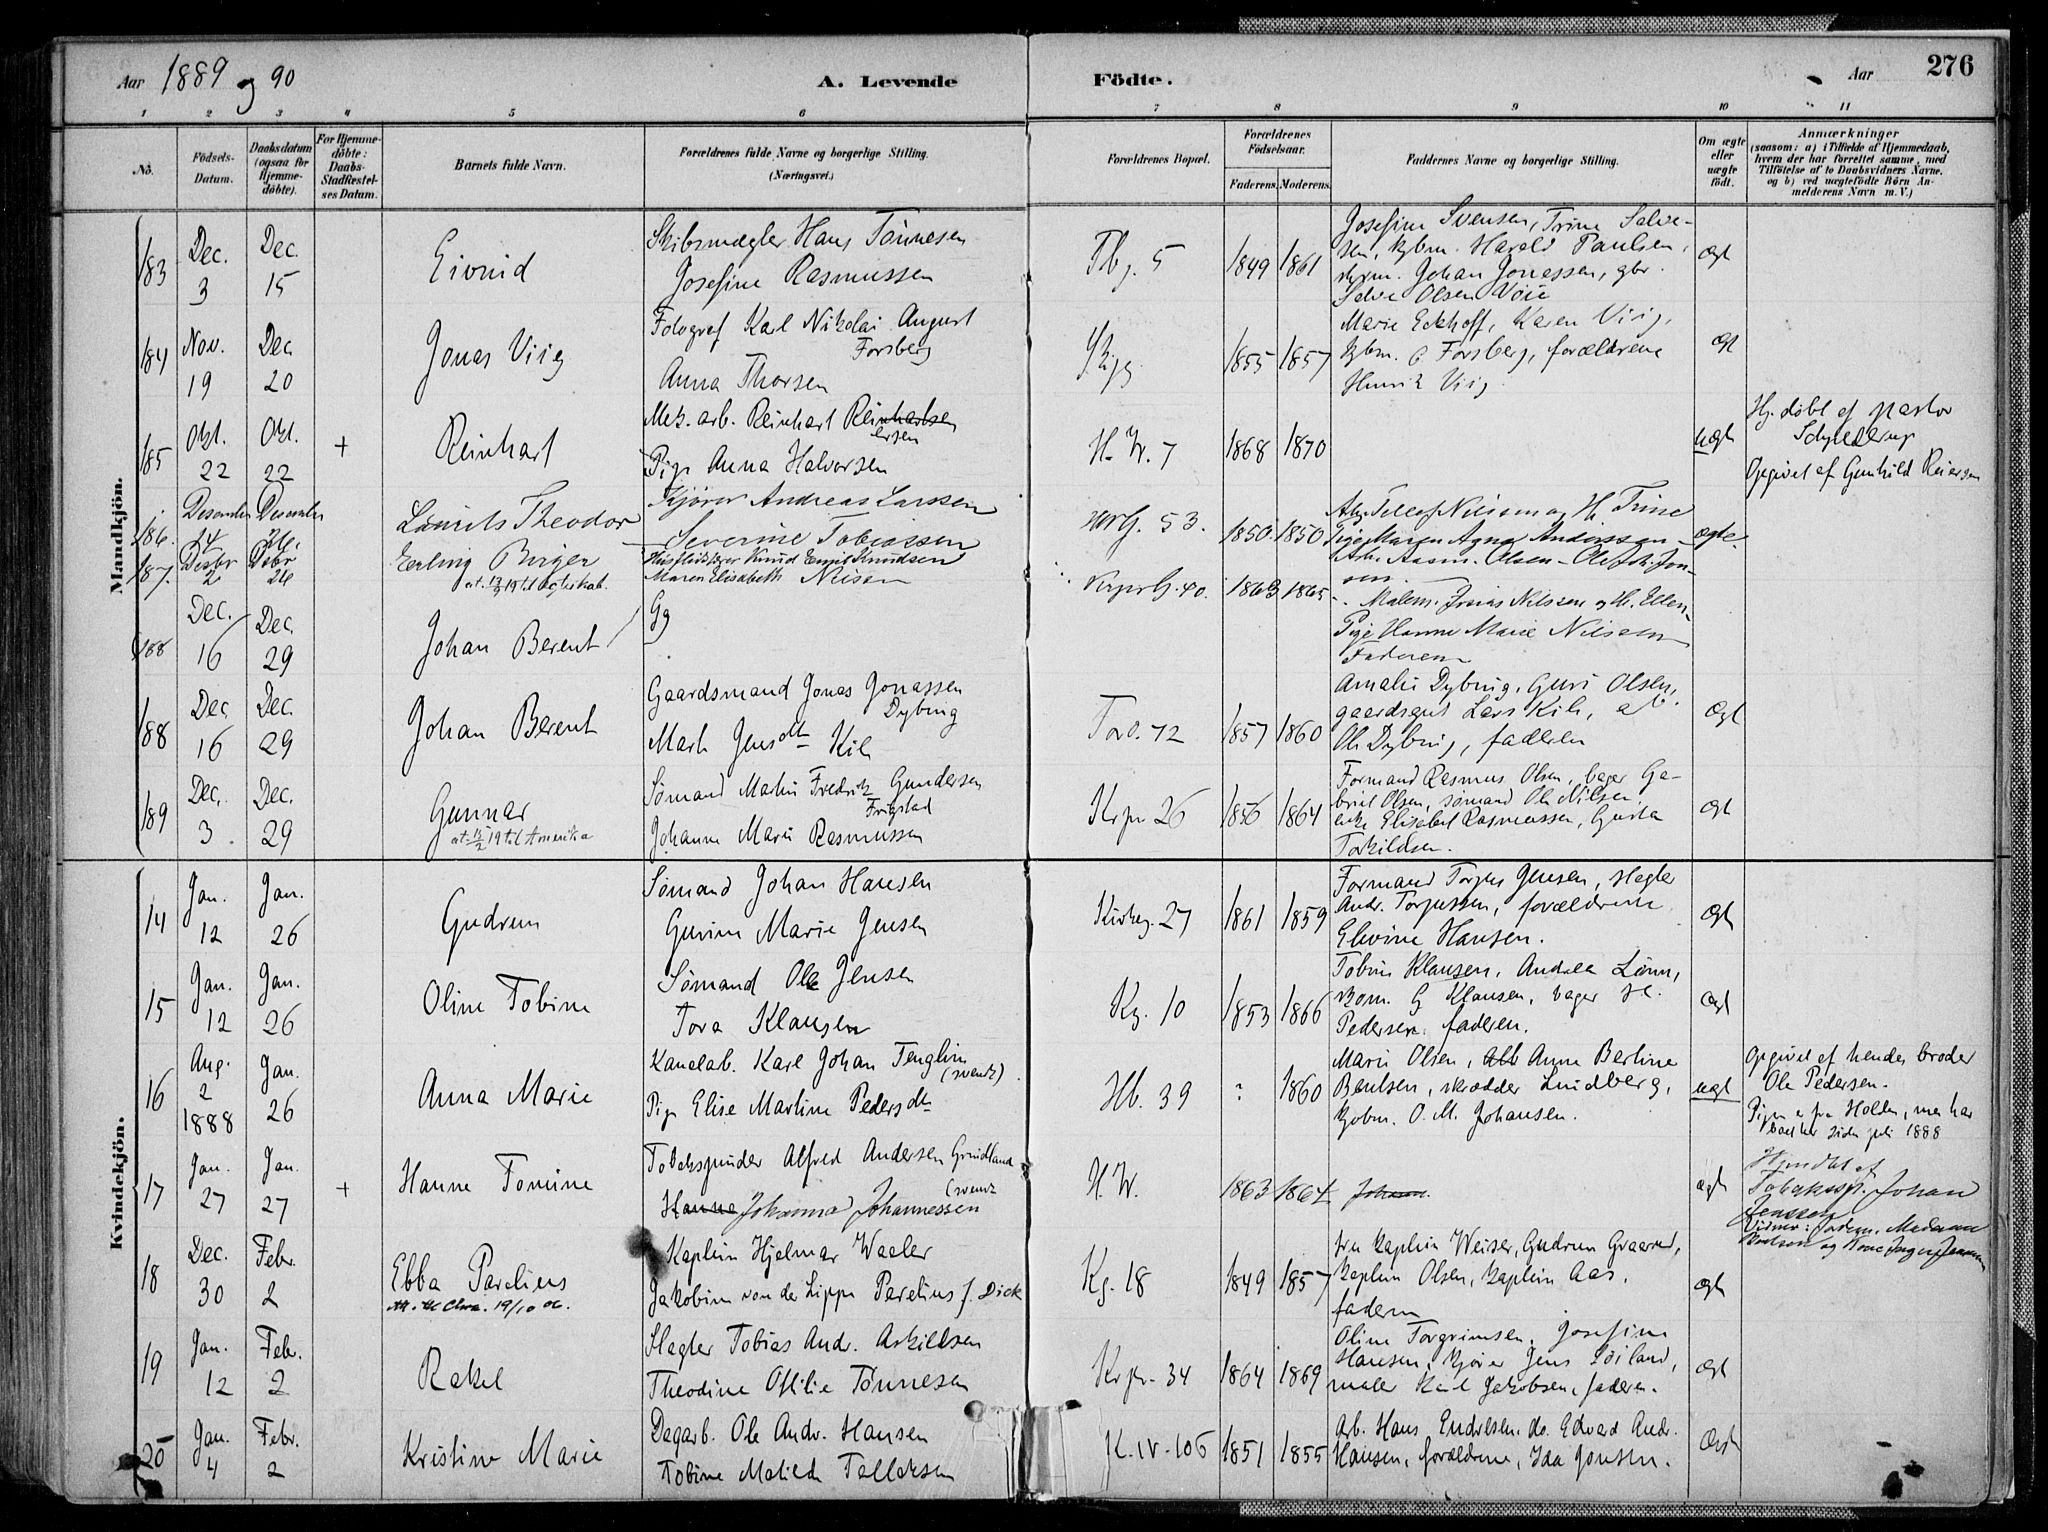 Aar 1889 og 90
A. Levende
Födte.
Aar
276
1 2 3 4 5 6 7 8 9 10 11
No.
Födsels-
Datum.
Daabsdatum
(ogsaa for
Hjemme-
döbte).
For Hjemme-
döbte:
Daabs-
Stadfæstel-
ses Datum.
Barnets fulde Navn.
Forældrenes fulde Navne og borgerlige Stilling.
(Næringsvei.)
Forældrenes Bopæl.
Forældrenes
Födselsaar.
Faderens. Moderens.
Faddernes Navne og borgerlige Stilling.
Om ægte
eller
uægte
födt.
Anmærkninger
(saasom: a) i Tilfælde af Hjemmedaab,
hvem der har forrettet samme, med
Tilföielse af to Daabsvidners Navne,
og b) ved uægtefödte Börn An-
melderens Navn m. V.)
Mandkjön.
183
Dec. 3
Dec. 15
Eivind
Skibsmægler Hans Tönnesen
Josefine Rasmussen
5
1849
1861
Josefine Svensen, Trine Salve-
sen, kjbm. Harald Paulsen,
Johan Jonassen, gbr.
Salve Olsen Vöie
Ægt
184
Nov. 19
Dec 20
Jonas Visig
Fotograf Karl Nikolai August
Forsberg
Anna Thorsen
1855
1857
Marie Eckhoff, Karen Visig,
kjbm. Forsberg, forældrene
Henrik Visig.
Ægt
185
Okt. 22
Okt. 22
+
Reinhart
Mek. arb. Reinhart Reinhartsen
ersen
Pige Anna Halvorsen
H. W. 7
1868
1870
uægt
Hj. döbt af pastor
Schjelderup
Opgivet af Gunhild Reiersen
186.
Desember 24
Desember 26.
Laurits Theodor
Kjörer Andreas Larssen
Severine Tobiassen
53.
1850
1850
Arb. Tellef Nilssen og H. Trine
Pige Maren Agnes Anderssen
Arb. Aasm. Olsen - Ole Jon-
sen.
Ægte.
187.
Desbr 2
Debr 26
Erling Birger
Knud Emil Knudsen
Maren Elisabeth Nilsen
Krpr G. 40.
1863
1865
Malem. Jonas Nilssen og H. Ellen
Pige Hanne Marie Nilssen
Faderen
188
Dec. 16
Dec. 29
Johan Berent
Gg
188
Dec 16
Dec. 29
Johan Berent
Gaardsmand Jonas Jonassen
Dybing
Jensdtr Kile
Tord. 72
1857
1860
Amalie Dybing, Guri Olsen,
gaardsgut Lars Kile, arb.
Ole Dybing, faderen
Ægt
189
Dec. 3
Dec. 29
Gunnar
19 til Amerika
Sömand Martin Fredrik Gundersen
Frigstad
Johanne Marie Rasmussen
Krpr 26
1856
1864
Formand Rasmus Olsen, bager Ga-
briel Olsen, sömand Ole Nilsen,
enke Elisabet Rasmussen, Gusta
Torkildsen.
Ægt
Kvindekjön.
14
Jan. 12
Jan. 26
Gudrun
Sömand Johan Hansen
Gurine Marie Jensen
Kirkeg. 27
1861
1859
Formand Torjus Jensen, slagter
Andr. Torjussen, forældrene
Elevine Hansen.
Ægt
15
Jan. 12
Jan. 26
Oline Tobine
Sömand Ole Jensen
Tora Klausen
Kg. 10
1853
1866
Tobine Klausen, Andrea Lönn,
G Klausen, bager
Pedersen. faderen.
Ægt
16
Aug. 2 1888
Jan. 26
Anna Marie
Kanalarb. Karl Johan Tenglin
(svensk)
Pige Elise Martine Pedersdtr
Hb. 39
?
1860
Marie Olsen, Anne Bertine
Bentsen, skrædder Lindberg,
kjbm. O. M. Johansen.
uægt
Opgivet af hendes broder
Ole Pedersen.
Pigen er fra Holden, men har
boet her siden juli 1888
17
Jan. 27
Jan. 27
+
Hanne Tomine
Tobakspinder Alfred Andersen Grindland
(svensk
Hanne Johanna Johannessen
H. W.
1863
1864
Johann.
Ægt
Hjemdöbt af
Tobaksp. Johan
Jenssen
Vidner: Jordem. Madsen
18
Dec. 30
Febr. 2
Ebba Parelius
Att. til Chra. 19/10 06.
Kaptein Hjelmar Waaler
Jakobine von der Lippe Parelius f. Dick
Kg. 18
1849
1857
fru kaptein Weiser, Gudrun Graarud,
kaptein Olsen, kaptein Aas,
faderen
Ægt
19
Jan. 12
Febr. 2
Rakel
Slagter Tobias Andr. Askildsen
Theodine Otilie Tönnesen
Krpr. 34
1864
1869
Oline Torgrimsen, Josefine
Hansen, kjörer Jens Söiland,
maler Karl Jakobsen, faderen.
Ægt
20
Jan. 4
Febr. 2
Kristine Marie
Dagarb. Ole Andr. Hansen
Tobine Matilde Tellefsen
K. IV - 106
1851
1855
Arb. Hans Endresen, do. Edvard Andr.
Hansen, forældrene, Ida Jonsen.
Ægt